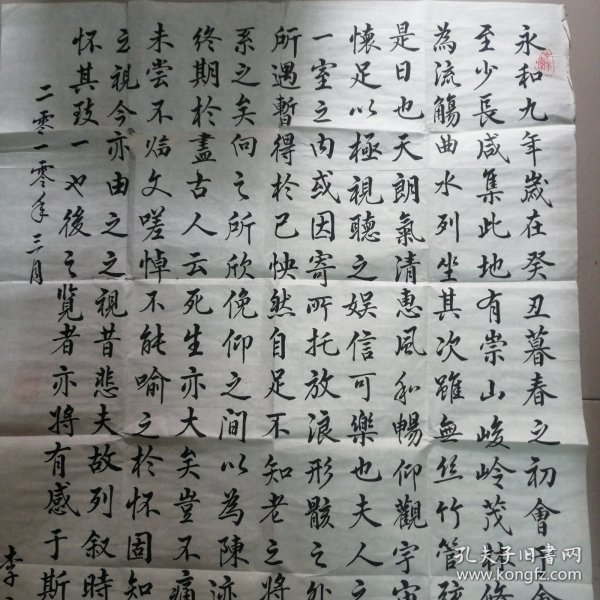 永和九年歲在癸丑暮春之初會于會
至少長咸集此地有崇山峻岭茂林修
為流觴曲水列坐其次雖無丝竹管弦
是日也天朗氣清惠風和暢仰觀宇宙
懷足以極視聽之娱信可樂也夫人之
一室之内或因寄所托放浪形骸之外
所遇暫得於己怏然自足不知老之將
系之矣向之所欣俛仰之間以為陳迹
终期於盡古人云死生亦大矣豈不痛
未嘗不临文嗟悼不能喻之於怀固知
之視今亦由之之視昔悲夫故列叙時
怀其致一也後之覧者亦将有感于斯
二零一零年三月
李
孔夫子旧书网
www.kongfz.com